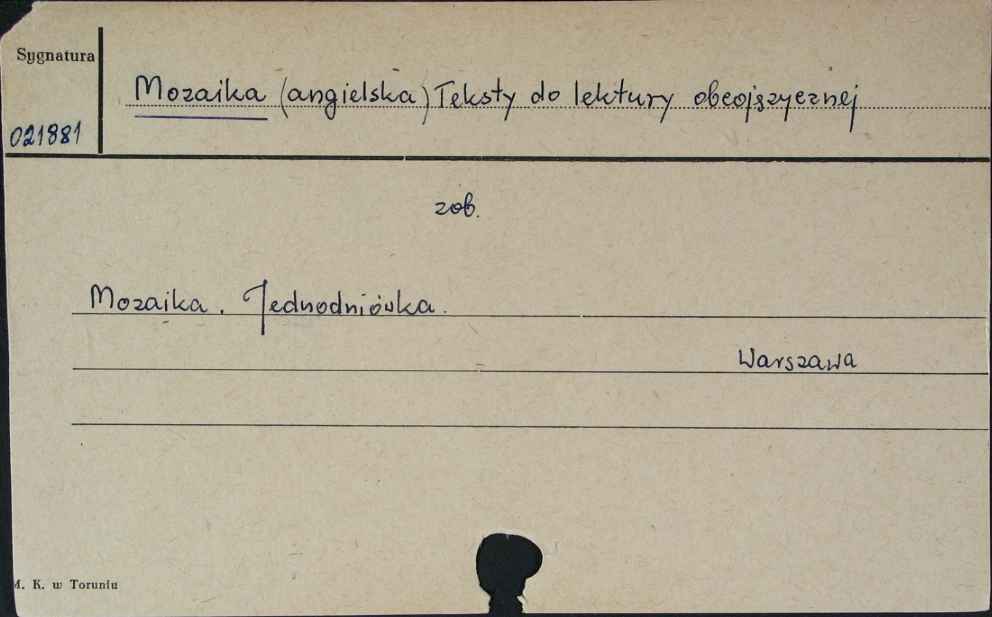 Sygnatura
Mozaika (angielska) Teksty do lektury obcojęzycznej
021881
zob.
Mozaika. Jednodniówka.
Warszawa
M. K. w Toruniu